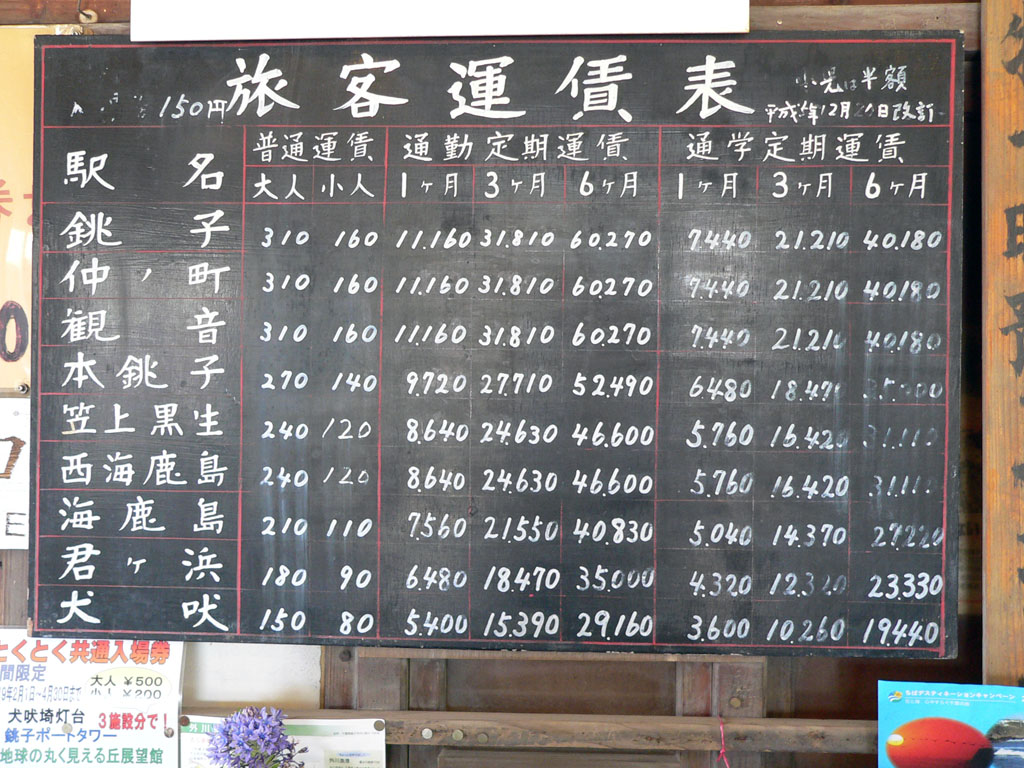 150円
旅客運賃表
小児は半額
平成 年12月 日改訂
駅名 普通運賃 通勤定期運賃 通学定期運賃
大人 小人 1ヶ月 3ヶ月 6ヶ月 1ヶ月 3ヶ月 6ヶ月
銚子 310 160 11.160 31.810 60.270 7.440 21.210 40.180
仲ノ町 310 160 11.160 31.810 60.270 7.440 21.210 40.180
観音 310 160 11.160 31.810 60.270 7.440 21.210 40.180
本銚子 270 140 9.720 27.710 52.490 6.480 18.470
笠上黒生 240 120 8.640 24.630 46.600 5.760 16.420 31.110
西海鹿島 240 120 8.640 24.630 46.600 5.760 16.420 31.110
海鹿島 210 110 7.560 21.550 40.830 5.040 14.370 27.220
君ヶ浜 180 90 6.480 18.470 35.000 4.320 23.330
犬吠 150 80 5.400 15.390 29.160 3.600 10.260 19.440
とくとく共通入場券
間限定
大人 ¥500
小人 ¥200
9年2月1日~4月30日まで
犬吠埼灯台
3施設分で!
銚子ポートタワー
地球の丸く見える丘展望館
外川
ちばデスティネーションキャンペーン
0
E